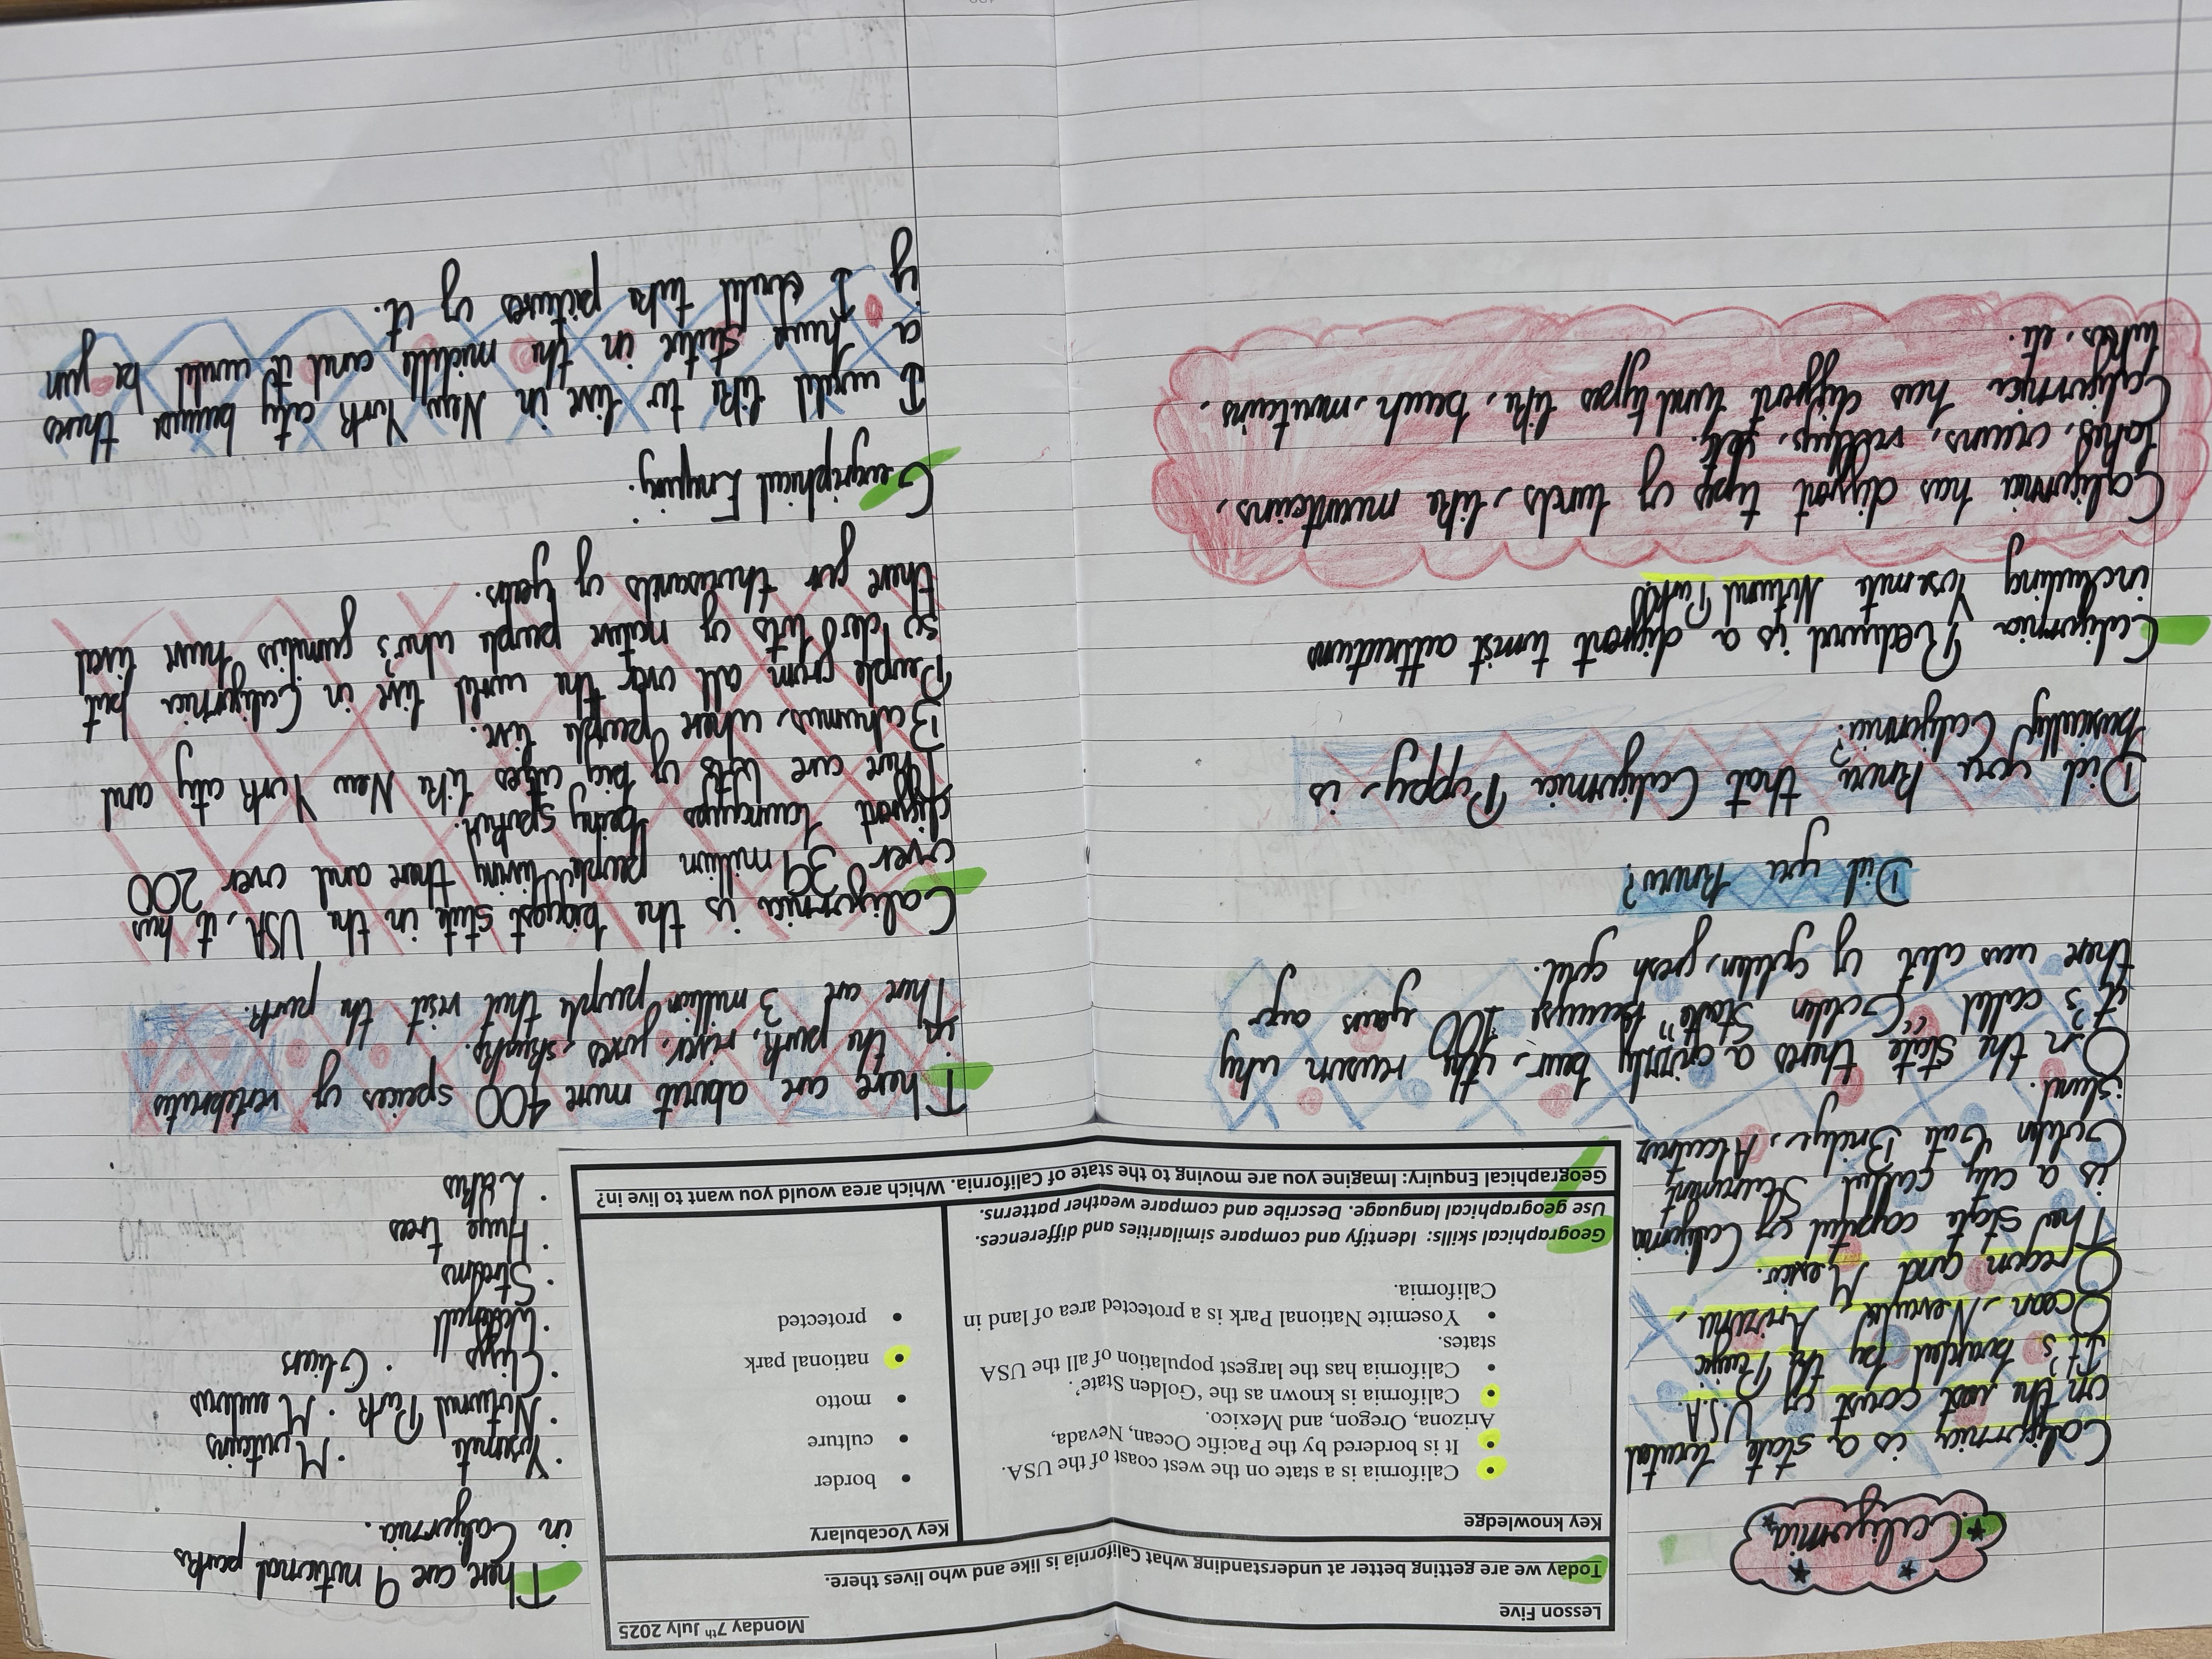 California
California is a state located
on the west coast of U.S.A.
it's borded by the Pacific
Ocean, Nevada, Arizona,
Oregon and Mexico.
The state capital of California
is a city called Sacrament
Golden Gate Bridge, Alcatraz
island.
On the state theres a grizzly bear, the reason why
it's called "Golden State" because 100 years ago
there was alot of golden, fresh gold.
Did you know?
Did you know that California Poppy, is
basically California?
California Redwood is a diffront tourist attractions
including Yosemite National Park!
California has diffront typs of lands, like mountains,
lakes, oceans, valleys, etc.
California has diffront land types like, beach, mountains,
lakes, etc.
Lesson Five
Monday 7th July 2025
Today we are getting better at understanding what California is like and who lives there.
Key knowledge
• California is a state on the west coast of the USA.
• It is bordered by the Pacific Ocean, Nevada,
Arizona, Oregon, and Mexico.
• California is known as the 'Golden State'.
• California has the largest population of all the USA
states.
• Yosemite National Park is a protected area of land in
California.
Key Vocabulary
• border
• culture
• motto
• national park
• protected
Geographical skills: Identify and compare similarities and differences.
Use geographical language. Describe and compare weather patterns.
Geographical Enquiry: Imagine you are moving to the state of California. Which area would you want to live in?
There are 9 national parks
in California.
• Yosemite • Mountains
• National Park • Meadows
• Cliffs • Gliers
• Waterfall
• Streams
• Huge trees
• Lakes
There are about more 400 speices of vertebrates
in the park, river, foxes, skunks.
There are 3 million people that visit the park.
California is the biggest state in the USA, it has
over 39 million people living there and over 200
diffront languges being spoken.
There are lots of big cites like New York city and
Bahamas, where people live.
People from all over the world live in California but
so do lots of native people who's families have lived
there for thousands of years.
Geogriphical Enquiry:
I would like to live in New York city because theres
a huge statue in the middle and it would be fun
if I could take pictures of it.